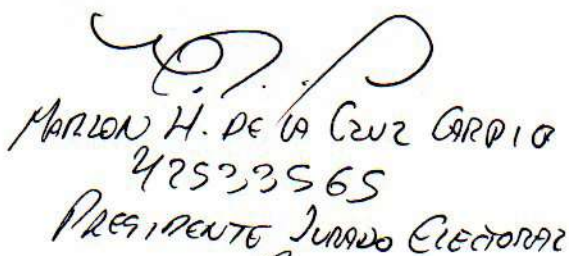 MARLON H. DE LA CRUZ CARPIO
42533565
PRESIDENTE JURADO ELECTORAL